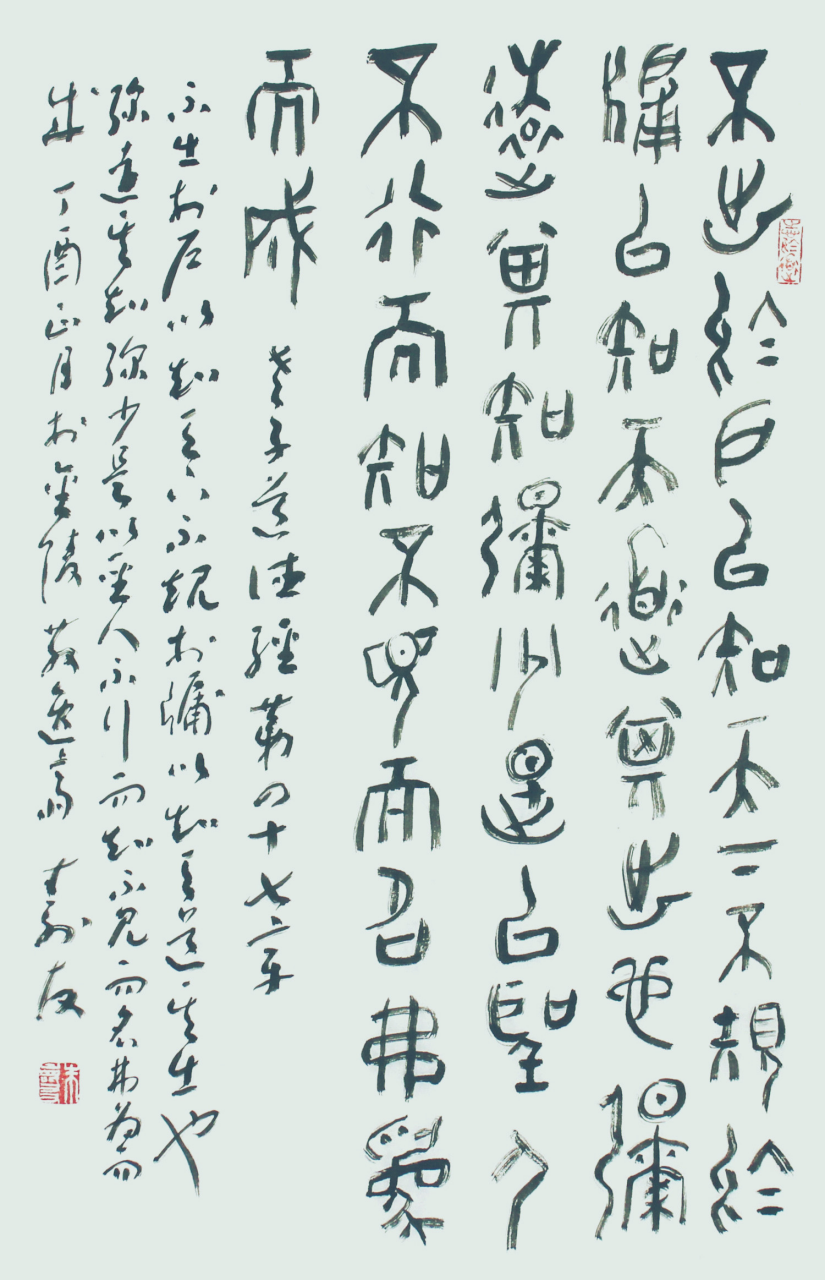 不出於戶以知天下不規於
牖以知天道其出也彌
遠其知彌少是以聖人
不行而知不見而名弗為
而成
老子道德經第四十七章
不出於戶以知天下不規於牖以知天道其出也
弥遠其知弥少是以聖人不行而知不見而名弗為而
成 丁酉正月於金陵逸斋 寿友